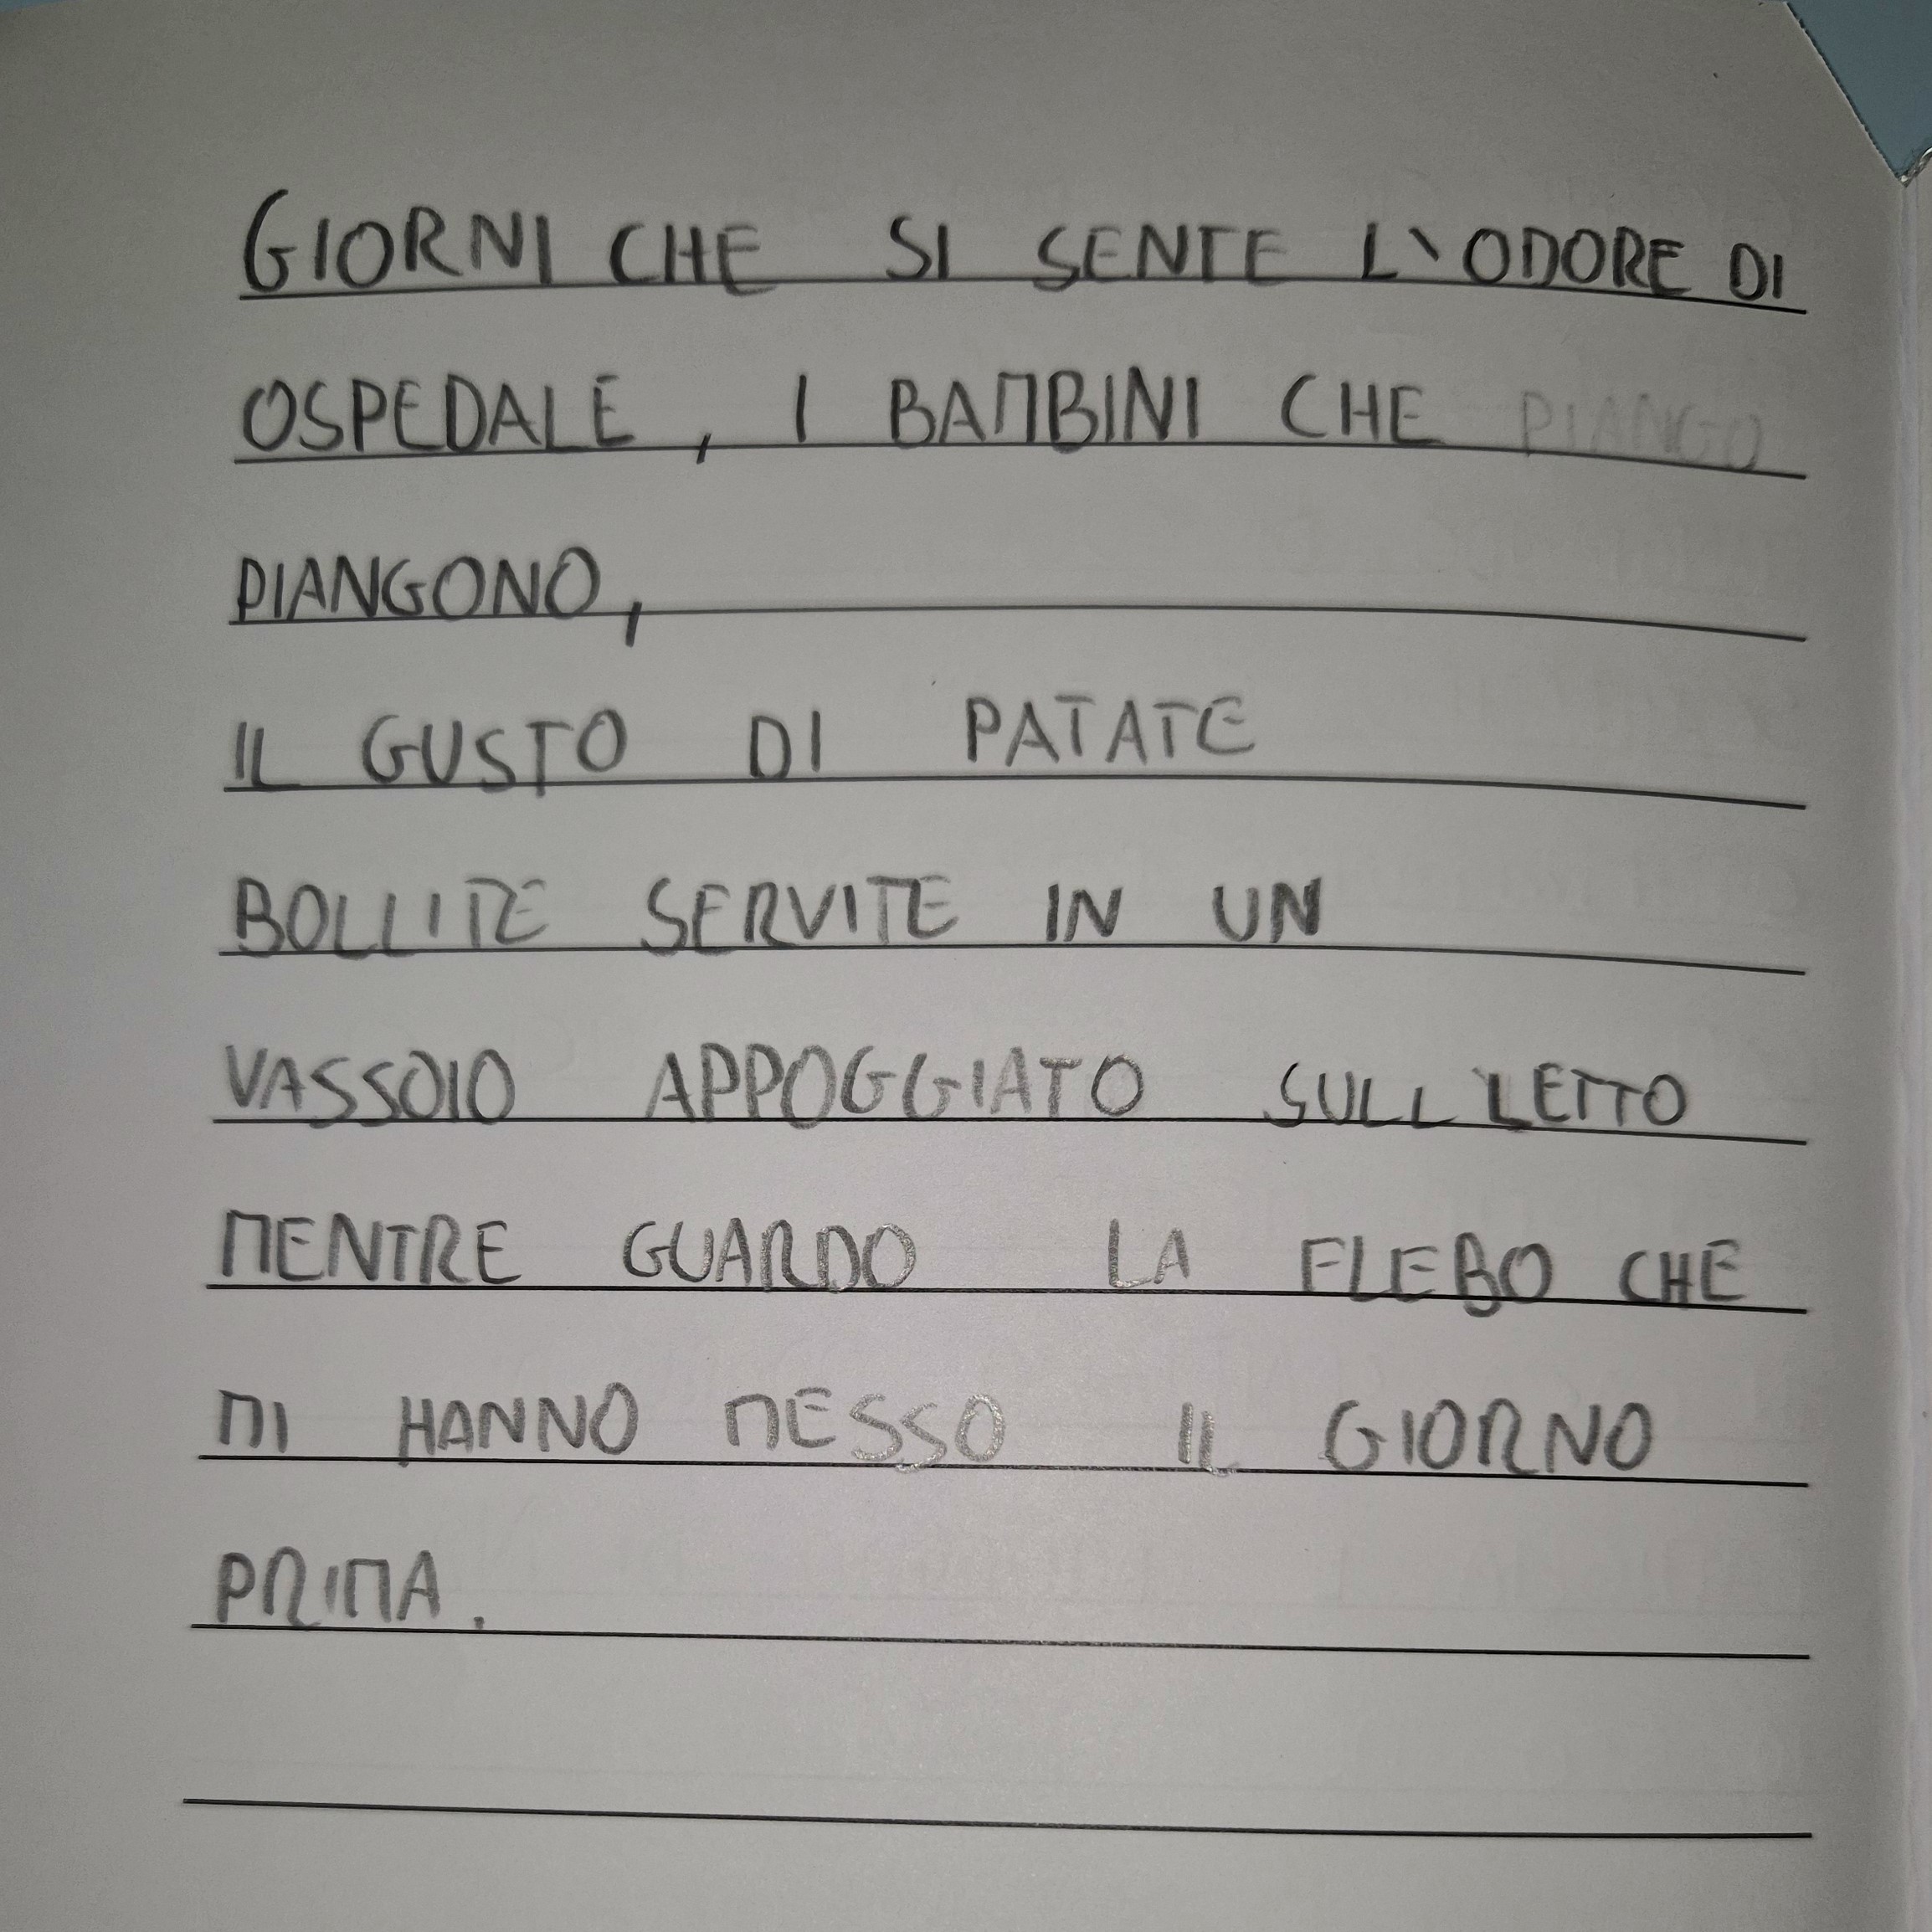 GIORNI CHE SI SENTE L'ODORE DI
OSPEDALE, I BAMBINI CHE PIANGO
PIANGONO,
IL GUSTO DI PATATE
BOLLITE SERVITE IN UN
VASSOIO APPOGGIATO SULL'LETTO
MENTRE GUARDO LA FLEBO CHE
MI HANNO MESSO IL GIORNO
PRIMA.